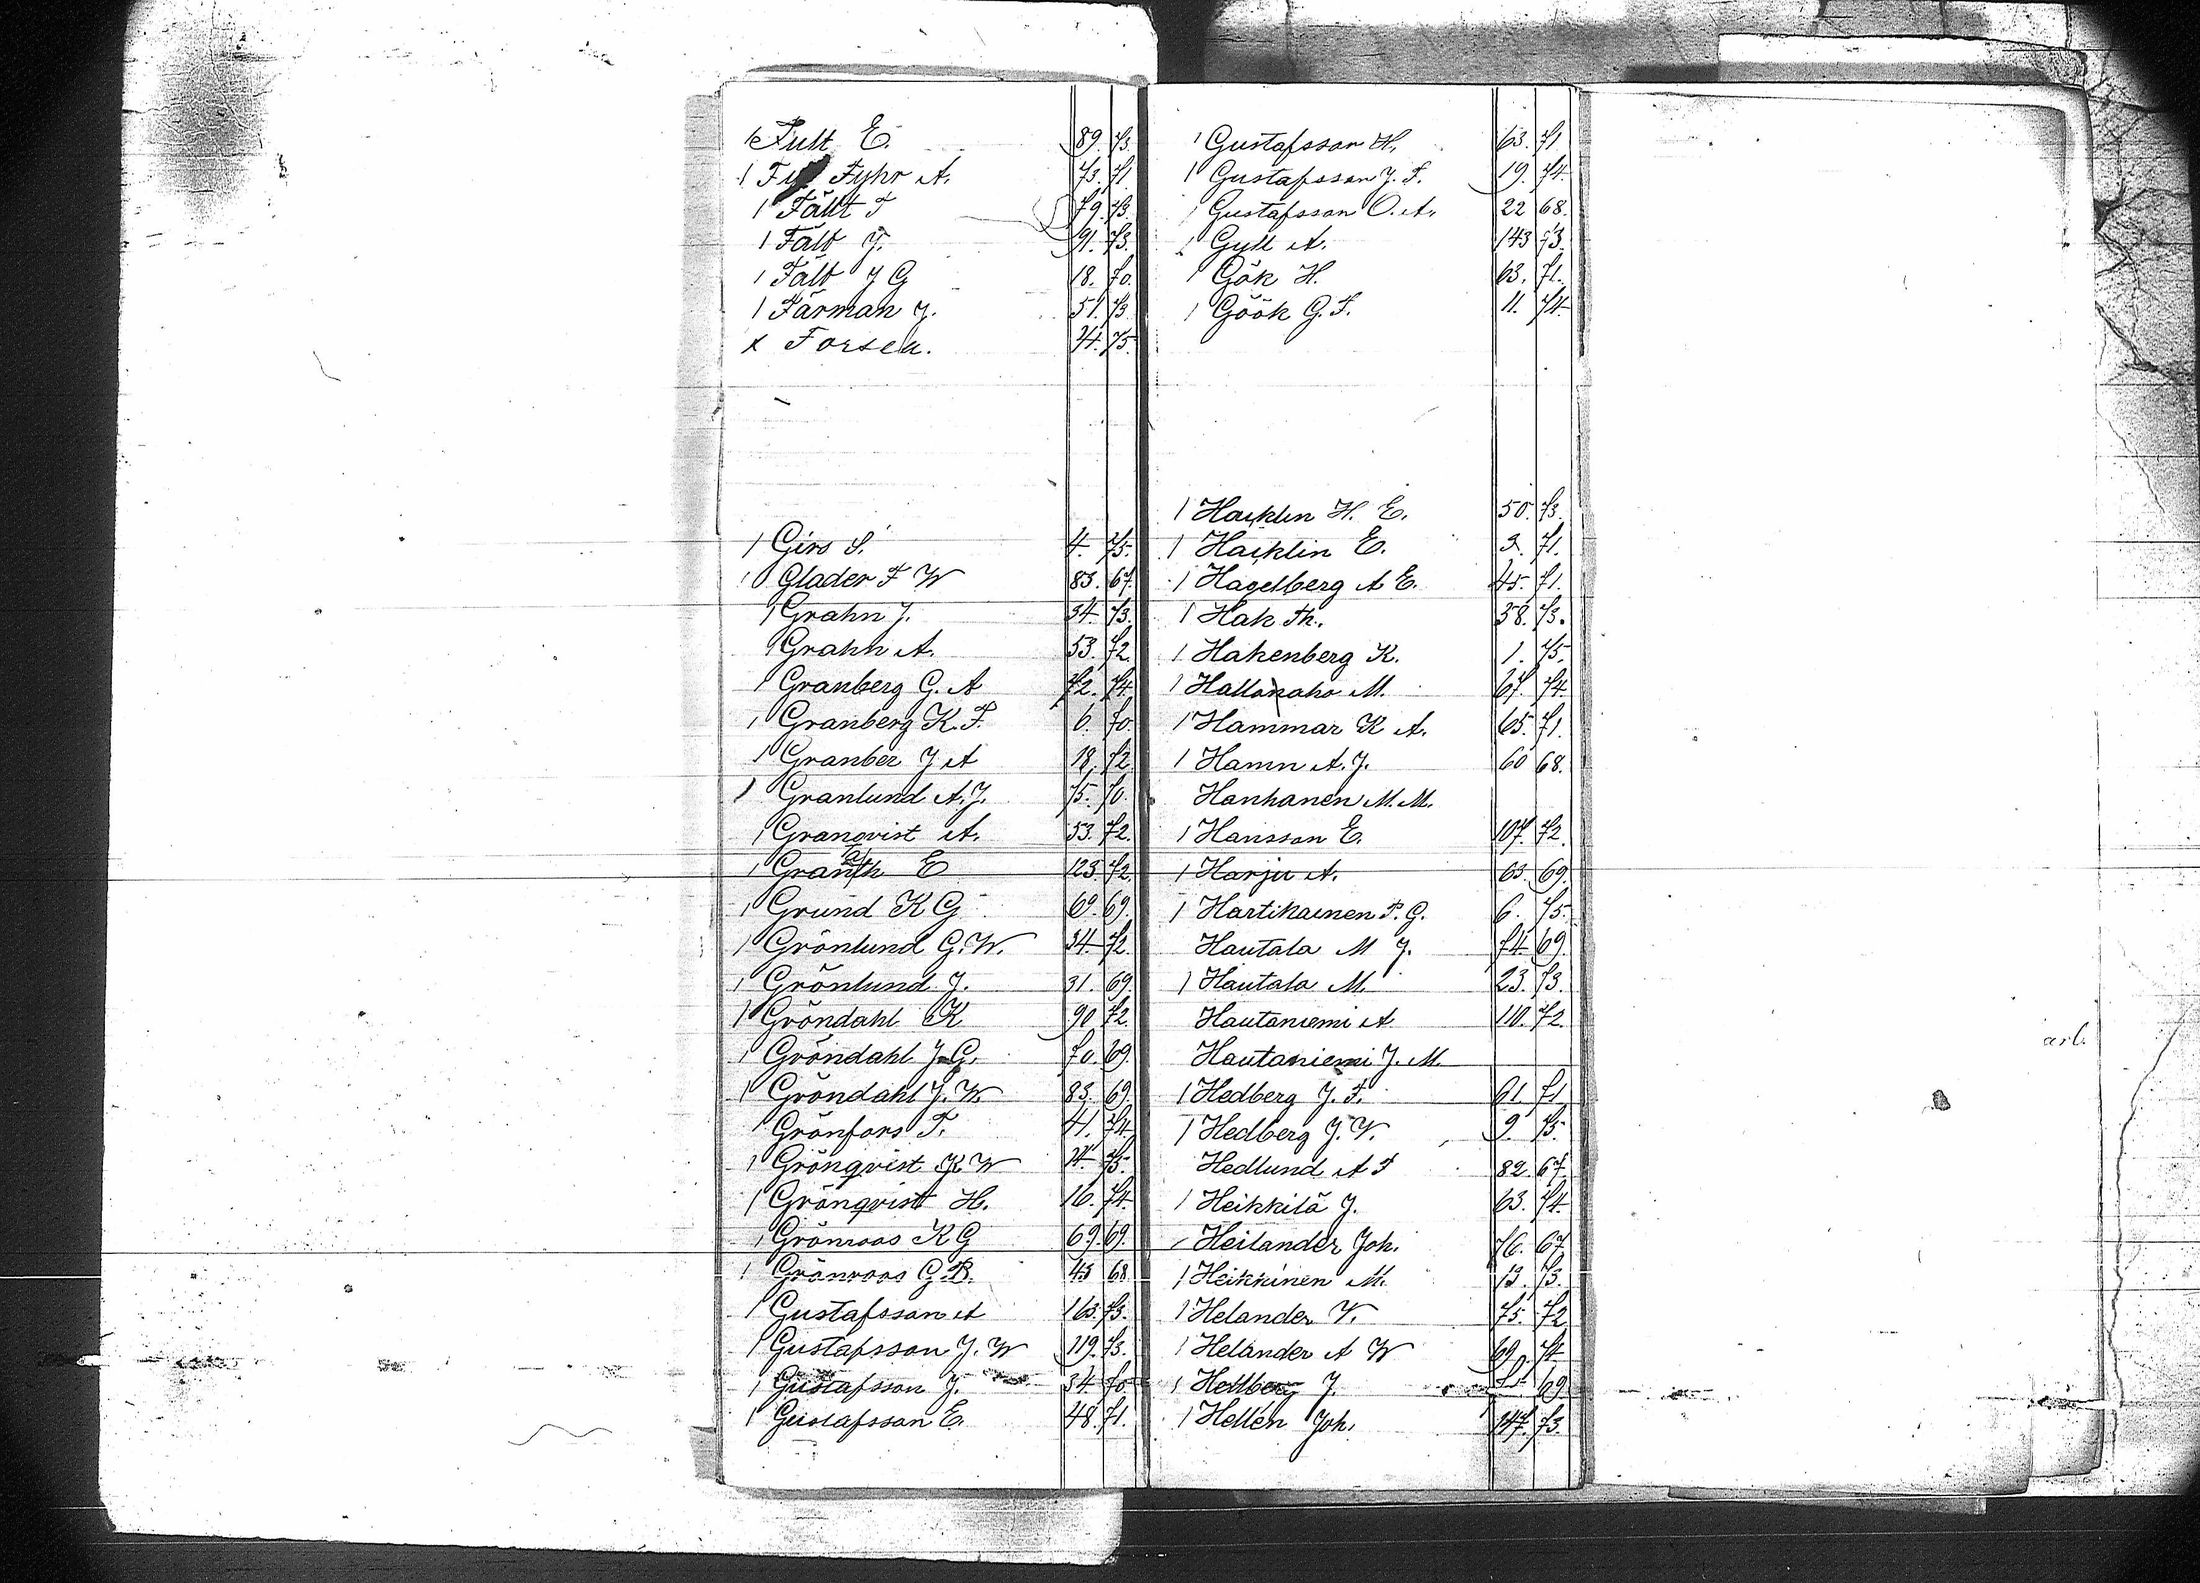 1 Fult E. 89. 73.
1 Fyhr A. 73. 71.
1 Fält F 79. 73.
1 Fält J. 91. 73.
1 Fält J G 18. 70.
1 Färman J. 51. 73
x Forsen. 74. 75.
1 Girs S. 4. 75.
1 Glader F W 83. 67.
1 Grahn J. 34. 73.
1 Grahn A. 53. 72.
1 Granberg G. A 72. 74.
1 Granberg K. F. 6. 70
1 Granber J A 18. 72
1 Granlund A. J. 75. 70.
1 Granqvist A. 53. 72.
1 Granth E 123. 72.
1 Grund K G 69. 69.
1 Grönlund G. W. 34. 72.
1 Grönlund J. 31. 69.
1 Gröndahl K 90 72.
1 Gröndahl J. G. 70. 69.
1 Gröndahl J. W. 83. 69.
1 Grönfors F. 41. 74.
1 Grönqvist K W 75.
1 Grönqvist H. 16. 74.
1 Grönroos K G 69. 69.
1 Grönroos G. B. 43 68
1 Gustafsson A 163. 73.
1 Gustafsson J. W 119. 73.
1 Gustafsson J. 34. 70
1 Gustafsson E. 48. 71.
1 Gustafsson H. 63. 71
1 Gustafsson J. F. 19. 74.
1 Gustafsson O. A. 22 68.
1 Gyll A. 143 73.
1 Gök H. 63. 71.
1 Göök G. F. 11. 74.
1 Hacklin H. E. 50. 73.
1 Hacklin E. 2. 71.
1 Hagelberg A E. 45. 71.
1 Hak Th. 38. 73.
1 Hakenberg K. 1. 75.
1 Hallanaho M. 67. 74.
1 Hammar K A. 65. 71.
1 Hamn A. J. 60 68.
Hanhanen M. M.
1 Hansson E. 107. 72.
1 Harju A. 63. 69.
1 Hartikainen P. G. 6. 75.
Hautala M J. 74. 69.
1 Hautala M. 23. 73.
Hautaniemi A. 110. 72.
Hautaniemi J. M.
1 Hedberg J. F. 61. 71
1 Hedberg J. V. 9. 75.
Hedlund A F 82. 67.
1 Heikkilä J. 63. 74.
Heilander Joh. 76. 67.
1 Heikkinen M. 13. 73.
1 Helander V. 75. 72
1 Helander A W 69. 74
1 Hellberg J. 69
1 Hellén Joh. 147. 73.
arb.